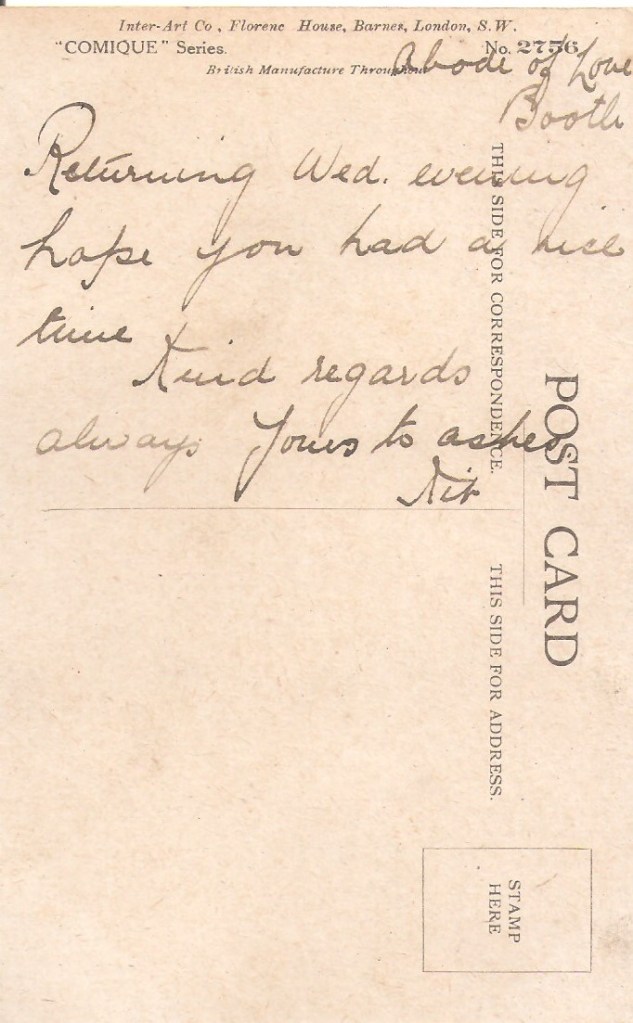 Inter-Art Co., Florenc House, Barnes, London, S.W.
"COMIQUE" Series. No. 2756
British Manufacture Throughout
Abode of Love
Booth
Returning Wed. evening
hope you had a nice
time
Kind regards
always Yours to ashes
THIS SIDE FOR CORRESPONDENCE.
POST CARD
THIS SIDE FOR ADDRESS.
STAMP
HERE